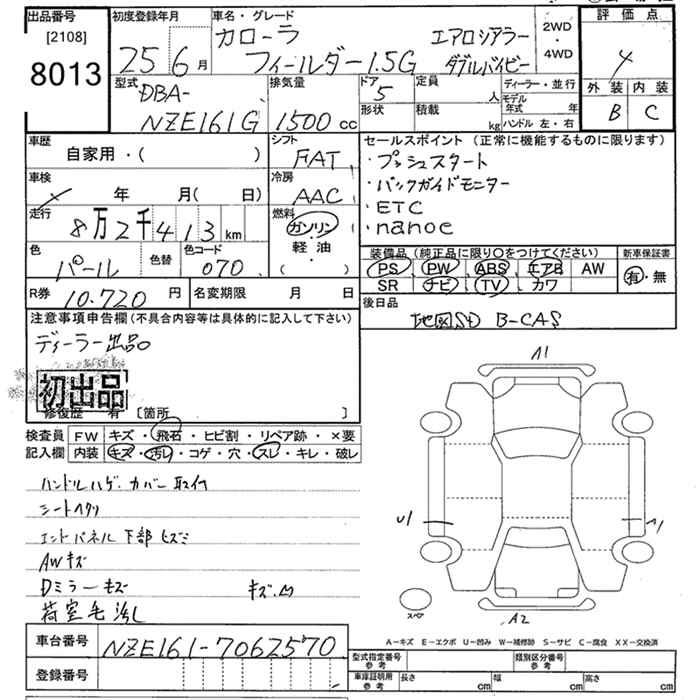 出品番号
[2108]
8013
初度登録年月
25 6 月
車名・グレード
カローラ エアロシアラー
フィールダー1.5G ダブルバイビー
2WD
・
4WD
評価点
4
外装 内装
B C
型式
DBA-
NZE161G
排気量
1500 cc
ドア
5
定員
人
形状
積載
kg
ディーラー・並行
モデル年式 年
ハンドル 左・右
車歴
自家用・( )
シフト
FAT
セールスポイント (正常に機能するものに限ります)
・プッシュスタート
・バックガイドモニター
・ETC
・nanoe
車検
年 月( 日)
冷房
AAC
走行
8万2千413km
燃料
ガソリン
軽油
・( )
色
パール
色替
色コード
070
装備品 (純正品に限り○をつけてください)
PS PW ABS エアB AW
SR ナビ TV カワ
新車保証書
有・無
R券 10.720 円
名変期限 月 日
後日品
地図SD B-CAS
注意事項申告欄(不具合内容等は具体的に記入して下さい)
ディーラー出品
初出品
修復歴 有 [箇所 ]
検査員 FW キズ・飛石・ヒビ割・リペア跡・×要
記入欄 内装 キズ・汚レ・コゲ・穴・スレ・キレ・破レ
ハンドルハゲ・カバー取付
シートヘタリ
エンドパネル下部ヒズミ
AWキズ
Dミラーキズ キズ.凹
荷室毛汚し
A1
U1
A1
スペア
A2
A-キズ E-エクボ U-凹み W-補修跡 S-サビ C-腐食 XX-交換済
車台番号 NZE161-7062570
登録番号
型式指定番号
参考
類別区分番号
参考
車庫証明用
参考
長さ cm
幅 cm
高さ cm